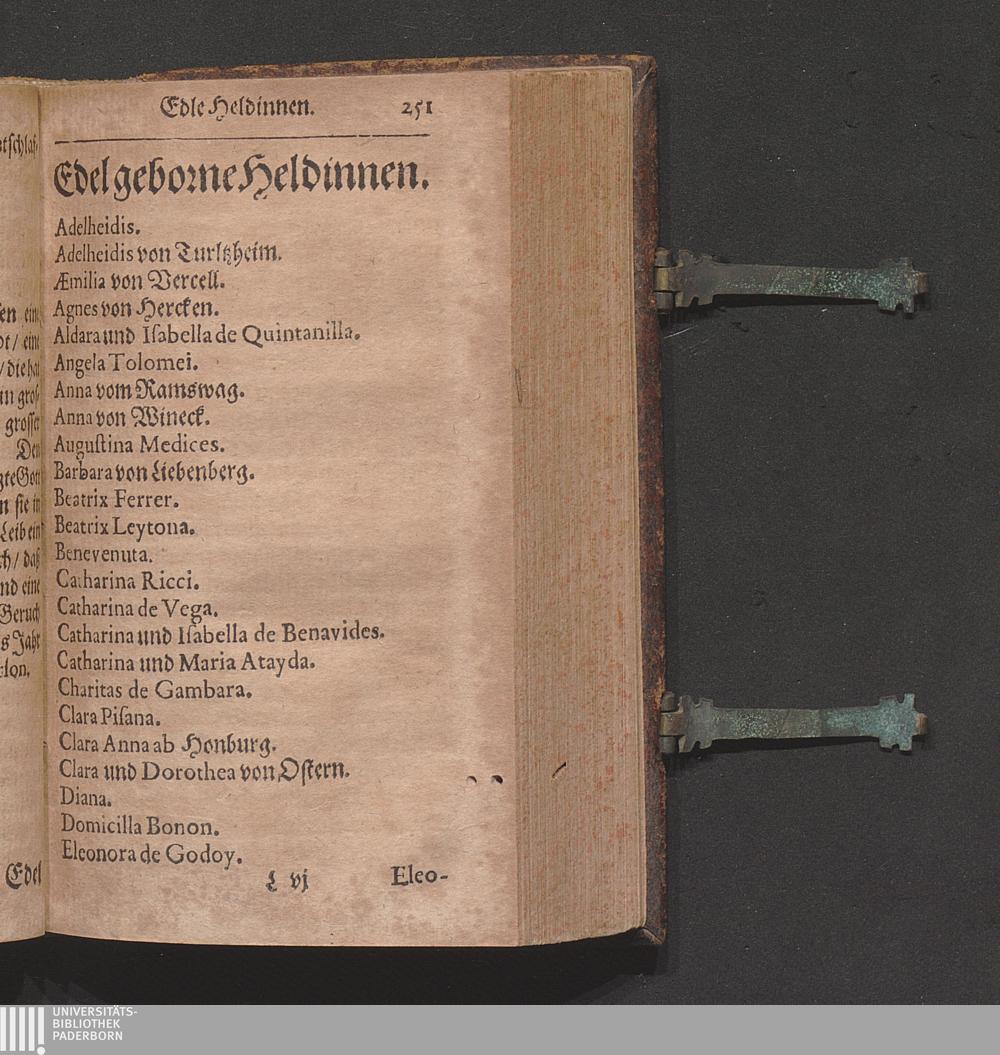 Edle Heldinnen. 251
Edelgeborne Heldinnen.
Adelheidis.
Adelheidis von Turltzheim.
Æmilia von Vercell.
Agnes von Hercken.
Aldara und Iſabella de Quintanilla.
Angela Tolomei.
Anna vom Ramswag.
Anna von Wineck.
Auguſtina Medices.
Barbara von Liebenberg.
Beatrix Ferrer.
Beatrix Leytona.
Benevenuta.
Catharina Ricci.
Catharina de Vega.
Catharina und Iſabella de Benavides.
Catharina und Maria Atayda.
Charitas de Gambara.
Clara Piſana.
Clara Anna ab Honburg.
Clara und Dorothea von Oſtern.
Diana.
Domicilla Bonon.
Eleonora de Godoy.
L vj Eleo-
ſen ein
/ die hat
groſſer
Den
n ſie in
Leib ein
ch / daß
nd eine
Geruch
s Jahr
Edel
UNIVERSITÄTS-
BIBLIOTHEK
PADERBORN